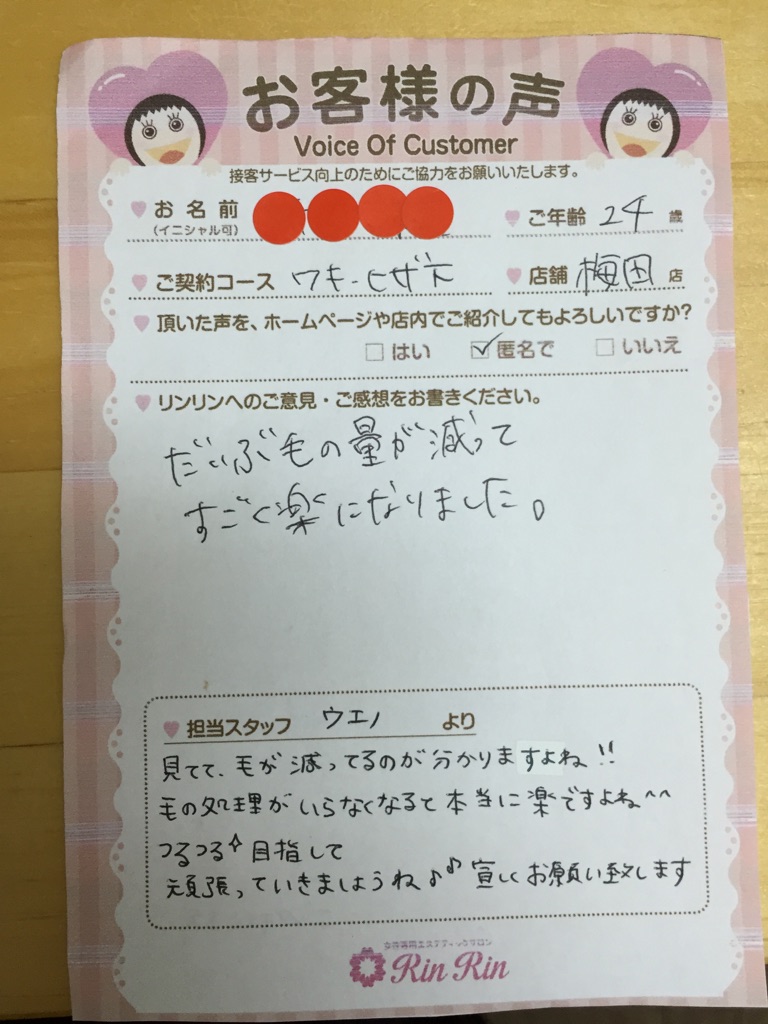 お客様の声
Voice Of Customer
接客サービス向上のためにご協力をお願いいたします。
お名前
(イニシャル可)
ご年齢 24 歳
ご契約コース ワキ・ヒザ下
店舗 梅田 店
頂いた声を、ホームページや店内でご紹介してもよろしいですか?
□はい ☑匿名で □いいえ
リンリンへのご意見・ご感想をお書きください。
だいぶ毛の量が減って
すごく楽になりました。
担当スタッフ ウエノ より
見てて、毛が減ってるのが分かりますよね!!
毛の処理がいらなくなると本当に楽ですよね^^
つるつる✧目指して
頑張っていきましょうね♪♪ 宜しくお願い致します
女性専用エステティックサロン
Rin Rin